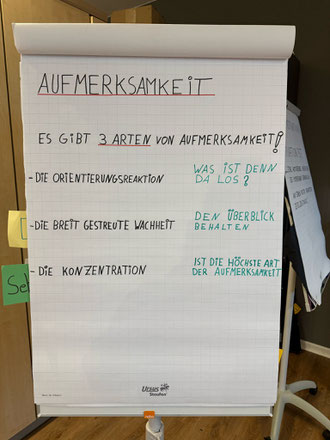 AUFMERKSAMKEIT
ES GIBT 3 ARTEN VON AUFMERKSAMKEIT!
- DIE ORIENTIERUNGSREAKTION
WAS IST DENN
DA LOS?
- DIE BREIT GESTREUTE WACHHEIT
DEN ÜBERBLICK
BEHALTEN
- DIE KONZENTRATION
IST DIE HÖCHSTE ART
DER AUFMERKSAMKEIT
Ursus